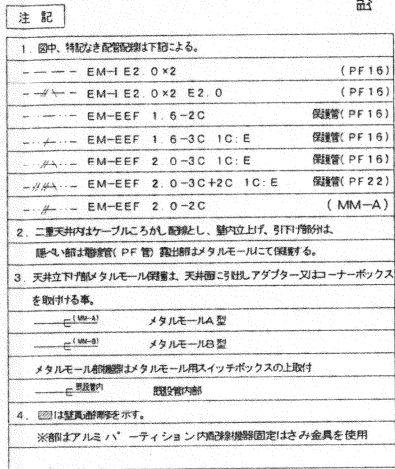 注 記
1. 図中、特記なき配管配線は下記による。
EM-IE2.0×2 (PF16)
EM-IE2.0×2 E2.0 (PF16)
EM-EEF 1.6-2C 保護管(PF16)
EM-EEF 1.6-3C 1C:E 保護管(PF16)
EM-EEF 2.0-3C 1C:E 保護管(PF16)
EM-EEF 2.0-3C+2C 1C:E 保護管(PF22)
EM-EEF 2.0-2C (MM-A)
2. 二重天井内はケーブルころがし配線とし、壁内立上げ、引下げ部分は、
隠ぺい部は電線管(PF管)露出部はメタルモールにて保護する。
3. 天井立下げ部メタルモール保護は、天井面に引出しアダプター又はコーナーボックス
を取付ける事。
(MM-A) メタルモールA型
(MM-B) メタルモールB型
メタルモール部機器はメタルモール用スイッチボックスの上取付
既設管内 既設管内部
4. は壁貫通補修を示す。
※部はアルミパーティション内配線機器固定はさみ金具を使用